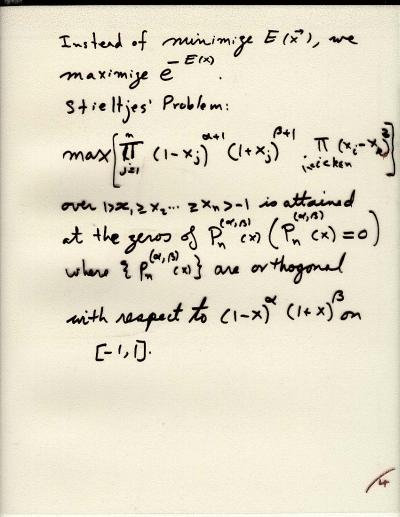 Instead of minimize E(x⃗), we
maximize e^{-E(x)}.
Stieltjes' Problem:
max{∏_{j=1}^{n} (1-x_j)^{α+1} (1+x_j)^{β+1} ∏_{1≤i<k≤n} (x_i-x_k)^2}
over 1>x_1≥x_2...≥x_n>-1 is attained
at the zeros of P_n^{(α,β)}(x) (P_n^{(α,β)}(x)=0)
where {P_n^{(α,β)}(x)} are orthogonal
with respect to (1-x)^α (1+x)^β on
[-1,1].
4